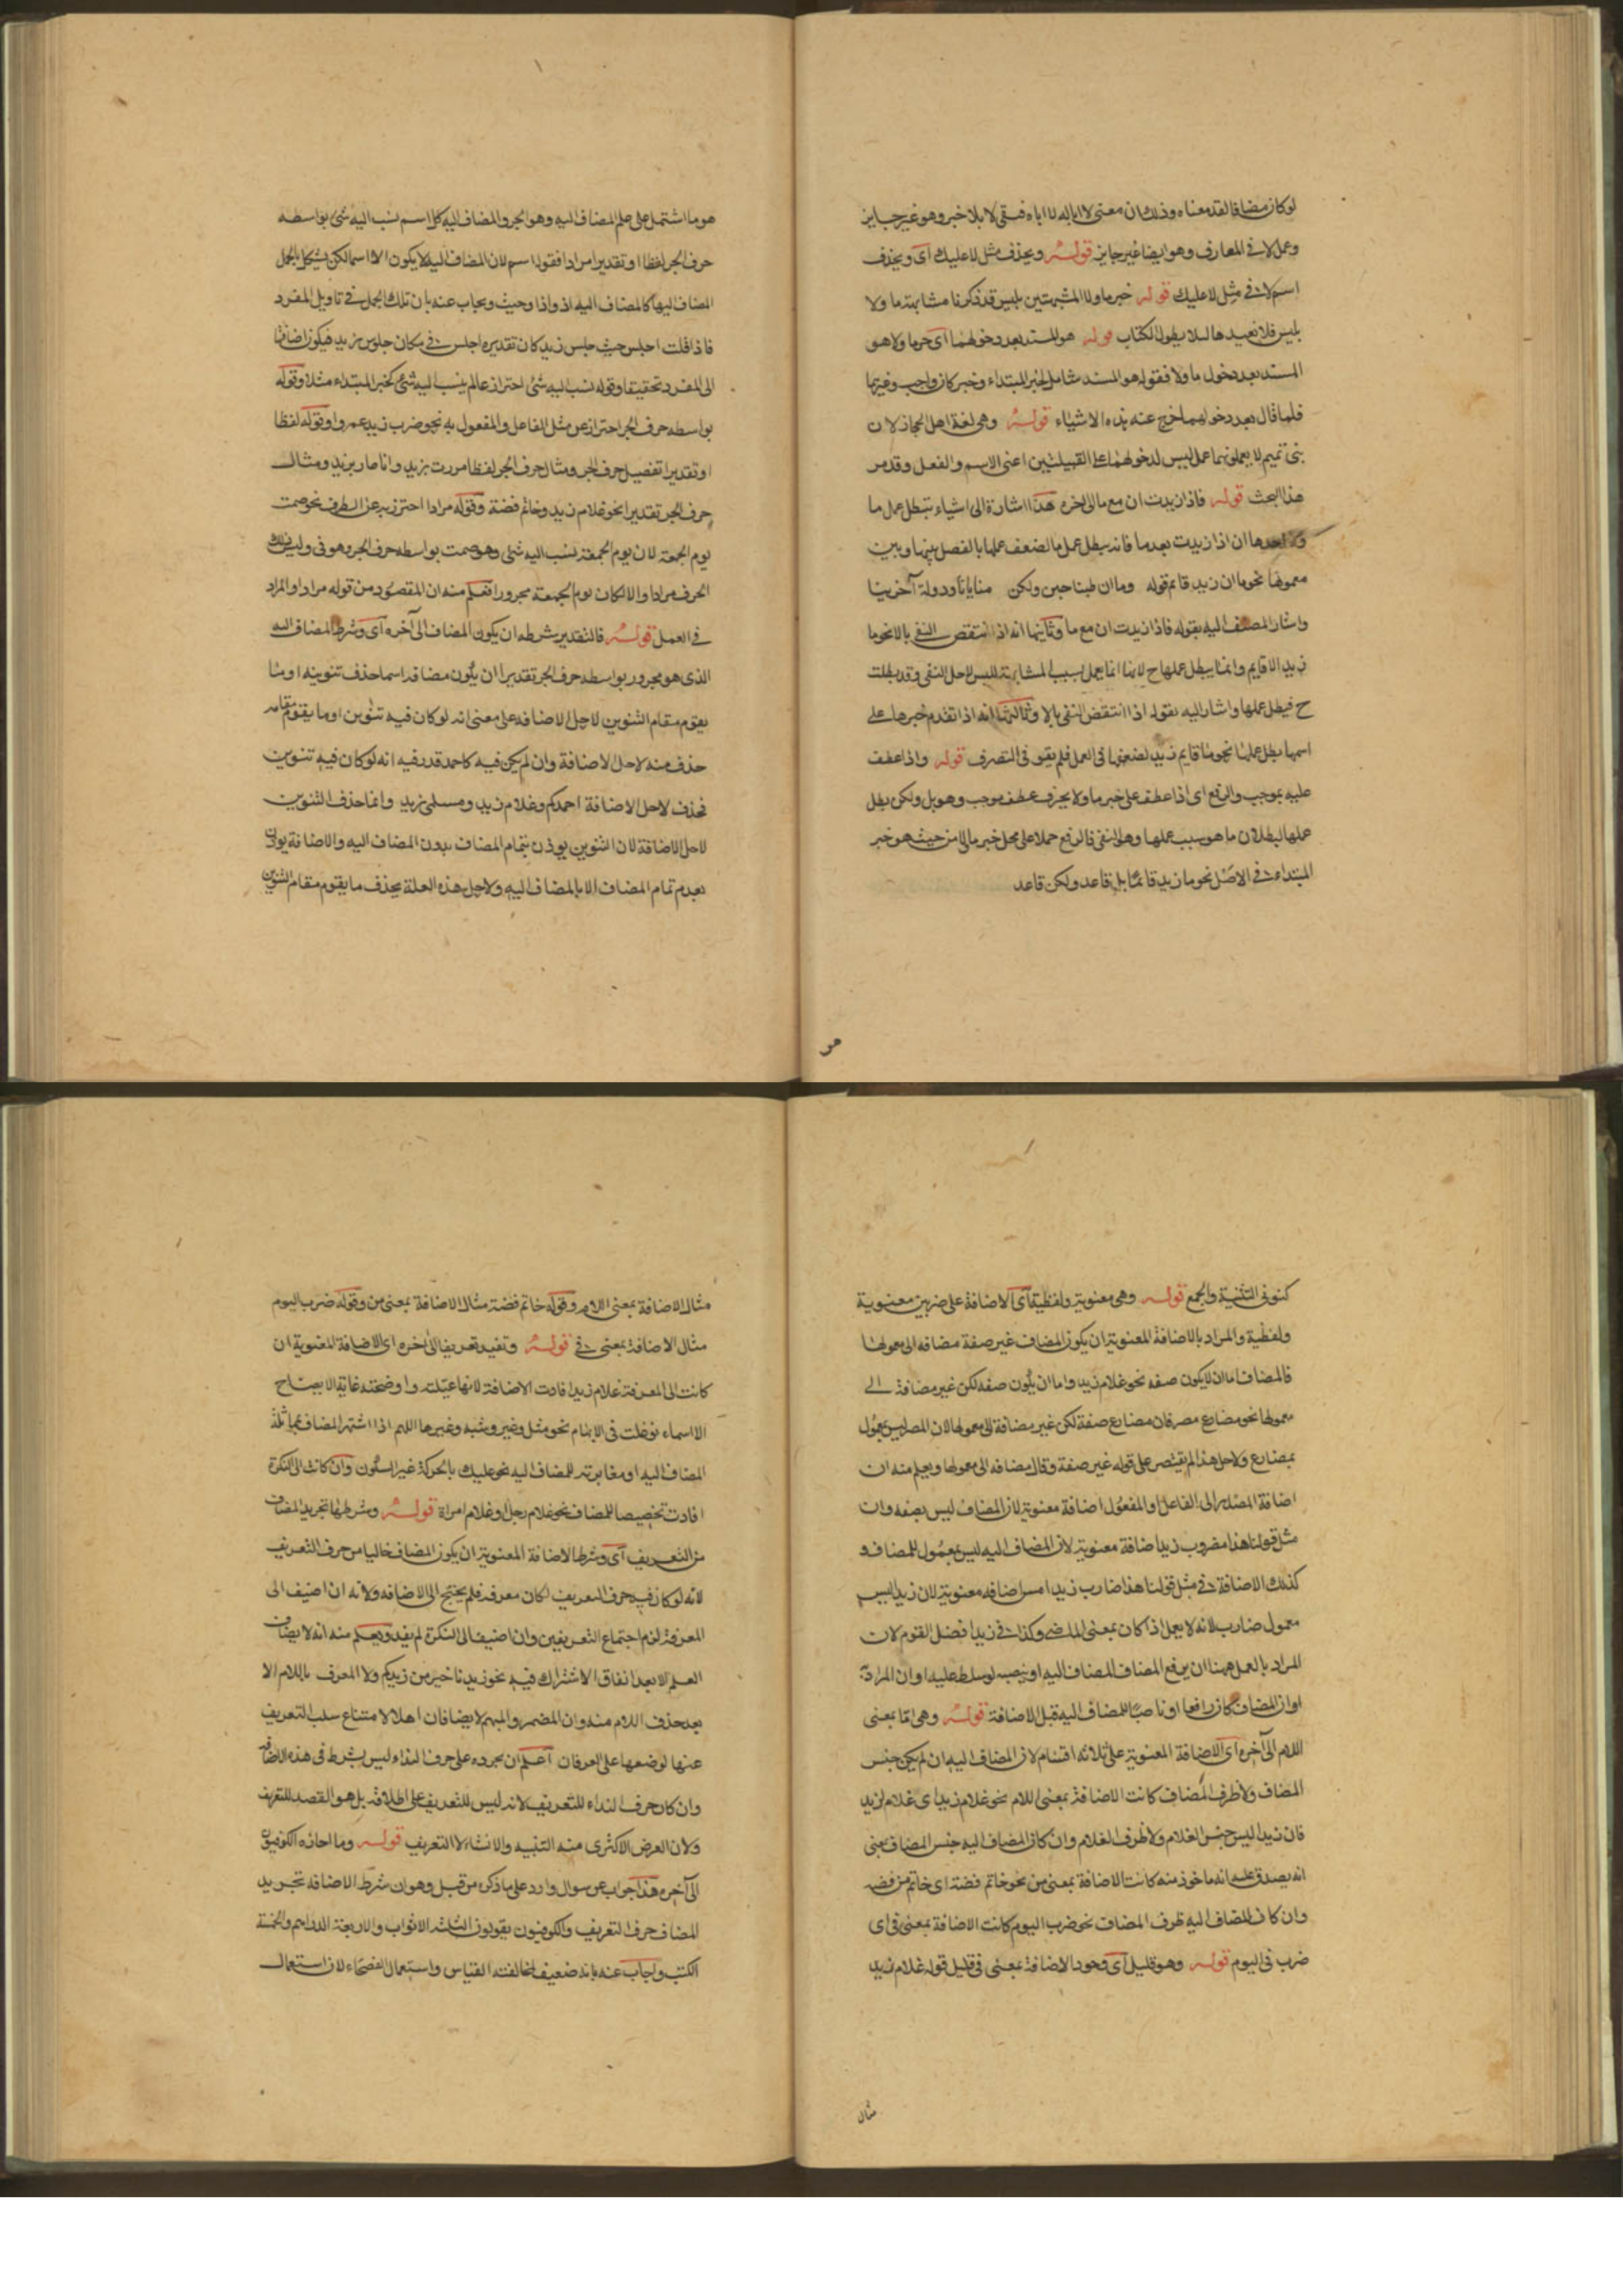 لوكان مضافا لفسد معناه وذلك ان معنى لا اباله لا اباه فبقى لا بلا خبر وهو غير جايز
وعمل لا فى المعارف وهو ايضا غير جايز قوله ويحذف مثل لا عليك اى ويحذف
اسم لا فى مثل لا عليك قوله خبر ما ولا المشبهتين بليس قد ذكرنا مشابهة ما ولا
بليس فلا نعيدها لئلا يطول الكتاب قوله هو المسند بعد دخولهما اى خبر ما ولا هو
المسند بعد دخول ما ولا فقوله هو المسند شامل لخبر المبتداء وخبر كان واجب وغيرها
فلما قال بعد دخولهما خرج عنه هذه الاشياء قوله وهى لغة اهل الحجاز لان
بنى تميم لا يعملونهما عمل ليس لدخولهما على القبيلتين اعنى الاسم والفعل وقد مر
هذا البحث قوله فاذا زيدت ان مع ما الى اخره هذا اشارة الى اشياء تبطل عمل ما
ان اذا زيدت بعد ما فانه يبطل عمل ما لضعف عملها بالفصل بينها وبين
معمولها نحو ما ان زيد قائم قوله وما ان طبنا جبن ولكن منايانا ودولة آخرينا
واشار المصنف اليه بقوله فاذا زيدت ان مع ما وثانيها انه اذا انتقض النفى بالا نحو ما
زيد الا قايم وانما يبطل عملها ح لانها انما تعمل بسبب المشابهة لليس لاجل النفى وقد بطلت
ح فيطل عملها واشار اليه بقوله اذا انتقض النفى بالا وثالثها انه اذا تقدم خبرها على
اسمها بطل عملها نحو ما قايم زيد لضعفها فى العمل فلم يقو فى التصرف قوله واذا عطف
عليه بموجب والرفع اى اذا عطف على خبر ما ولا بحرف عطف موجب وهو بل ولكن بطل
عملها لبطلان ما هو سبب عملها وهو النفى فالرفع حملا على محل خبر ما لا من حيث هو خبر
المبتداء فى الاصل نحو ما زيد قائما بل قاعد ولكن قاعد
هو ما اشتمل على علم المضاف اليه وهو الجر والمضاف اليه كل اسم نسب اليه شئ بواسطه
حرف الجر لفظا او تقديرا مرادا فقوله اسم لان المضاف اليه لا يكون الا اسما لكن يشكل بالجمل
المضاف اليها كالمضاف اليه اذ واذا وحيث ويجاب عنه بان تلك الجمل فى تاويل المفرد
فاذا قلت اجلس حيث جلس زيد كان تقديره اجلس فى مكان جلوس زيد فيكون اضافتها
الى المفرد تحقيقا وقوله نسب اليه شئ احتراز عما لم ينسب اليه شئ كخبر المبتداء مثلا وقوله
بواسطه حرف الجر احتراز عن مثل الفاعل والمفعول به نحو ضرب زيد عمروا وقوله لفظا
او تقديرا تفصيل حرف الجر ومثال حرف الجر لفظا مررت بزيد وانا مار بزيد ومثال
حرف الجر تقديرا نحو غلام زيد وخاتم فضة وقوله مرادا احترز به عن الظرف نحو صمت
يوم الجمعة لان يوم الجمعة نسب اليه شئ وهو صمت بواسطه حرف الجر وهو فى وليس ذلك
الحرف مرادا والا لكان يوم الجمعة مجرورا فعلم منه ان المقصود من قوله مرادا والمراد
فى العمل قوله فالتقدير شرطه ان يكون المضاف الى آخره اى وشرط المضاف اليه
الذى هو مجرور بواسطه حرف الجر تقديرا ان يكون مضافه اسما حذف تنوينه او ما
يقوم مقام التنوين لاجل الاضافه على معنى انه لو كان فيه تنوين او ما يقوم مقامه
حذف منه لاجل الاضافة وان لم يكن فيه كاحمد قدر فيه انه لو كان فيه تنوين
لحذف لاجل الاضافة احمدكم وغلام زيد ومسلمى زيد وانما حذف التنوين
لاجل الاضافة لان التنوين يوذن بتمام المضاف بدون المضاف اليه والاضافة يوذن
بعدم تمام المضاف الا بالمضاف اليه ولاجل هذه العلة يحذف ما يقوم مقام التنوين
كنونى التثنية والجمع قوله وهى معنوية ولفظية اى الاضافة على ضربين معنوية
ولفظية والمراد بالاضافة المعنوية ان يكون المضاف غير صفة مضافه الى معمولها
فالمضاف اما ان لا يكون صفه نحو غلام زيد واما ان يكون صفه لكن غير مضافة الى
معمولها نحو مضارع مصر فان مضارع صفة لكن غير مضافة الى معمولها لان المصر ليس بمعمول
بمضارع ولاجل هذا لم يقتصر على قوله غير صفة وقال مضافه الى معمولها ويعلم منه ان
اضافة المصدر الى الفاعل او المفعول اضافة معنوية لان المضاف ليس بصفه وان
مثل قولنا هذا مضروب زيد اضافة معنوية لان المضاف اليه ليس بمعمول للمضاف و
كذلك الاضافة فى مثل قولنا هذا ضارب زيد امس اضافه معنوية لان زيدا ليس
معمول ضارب لانه لا يعمل اذا كان بمعنى الماضى وكذا فى زيد افضل القوم لان
المراد بالعمل ههنا ان يرفع المضاف المضاف اليه او ينصبه لو سلط عليه او ان المراد به
او ان المضاف كان رافعا او ناصبا للمضاف اليه قبل الاضافة قوله وهى اما بمعنى
اللام الى آخره اى الاضافة المعنوية على ثلاثه اقسام لان المضاف اليه ان لم يكن جنس
المضاف ولا ظرف المضاف كانت الاضافة بمعنى اللام نحو غلام زيد اى غلام لزيد
فان زيدا ليس جنس الغلام ولا ظرف الغلام وان كان المضاف اليه جنس المضاف بمعنى
انه يصدق عليه انه ماخوذ منه كانت الاضافة بمعنى من نحو خاتم فضة اى خاتم من فضه
وان كان المضاف اليه ظرف المضاف نحو ضرب اليوم كانت الاضافة بمعنى فى اى
ضرب فى اليوم قوله وهو قليل اى وجود الاضافة بمعنى فى قليل قوله غلام زيد
مثال
مثال الاضافة بمعنى اللام وقوله خاتم فضة مثال الاضافة بمعنى من وقوله ضرب اليوم
مثال الاضافة بمعنى فى قوله وتفيد تعريفا الى اخره اى الاضافة المعنوية ان
كانت الى المعرفة غلام زيد افادت الاضافة لانها عيّنته واوضحته غاية الايضاح
الا اسماء توغلت فى الابهام نحو مثل وغير وشبه وغيرها اللهم اذا اشتهر المضاف بمماثلة
المضاف اليه او مغايرته للمضاف اليه نحو عليك بالحركة غير السكون وان كانت الى النكرة
افادت تخصيصا للمضاف نحو غلام رجل او غلام امراة قوله وشرطها تجريد المضاف
من التعريف اى وشرط الاضافة المعنوية ان يكون المضاف خاليا من حرف التعريف
لانه لو كان فيه حرف التعريف لكان معرفه فلم يحتج الى الاضافه ولانه ان اضيف الى
المعرفة لزم اجتماع التعريفين وان اضيف الى النكرة لم يفد ويعلم منه انه لا يضاف
العلم الا بعد اتفاق الاشتراك فيه نحو زيدنا خير من زيدكم ولا المعرف باللام الا
بعد حذف اللام منه وان المضمر والمبهم لا يضافان اصلا لامتناع سلب التعريف
عنها لوضعها على العرفان اعلم ان تجرده على حرف النداء ليس بشرط فى هذه الاضافه
وان كان حرف النداء للتعريف لانه ليس للتعريف على اطلاقه بل هو القصد للتعريف
ولان الغرض الاكثرى منه التنبيه والانشاء لا التعريف قوله وما اجازه الكوفيون
الى آخره هذا جواب عن سوال وارد على ما ذكره من قبل وهو ان شرط الاضافه تجريد
المضاف حرف التعريف والكوفيون يقولون الثلثة الاثواب والاربعة الدراهم والخمسة
الكتب واجاب عنه بانه ضعيف لمخالفته القياس واستعمال الفصحاء لان استعمال